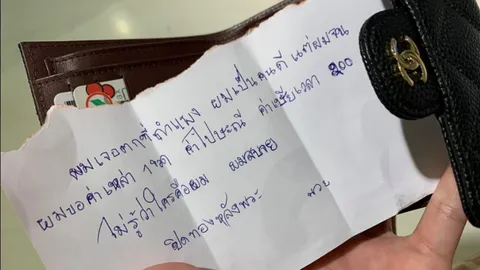 ผมเจอตกที่กำแพง ผมเป็นคนดี แต่ผมจน
ผมขอค่าเหล้า 1ขวด ค่าไปรษณี ค่าเสียเวลา 200
ไม่รู้ว่าใครคือผม ผมสบาย
ปิดทองหลังพระ